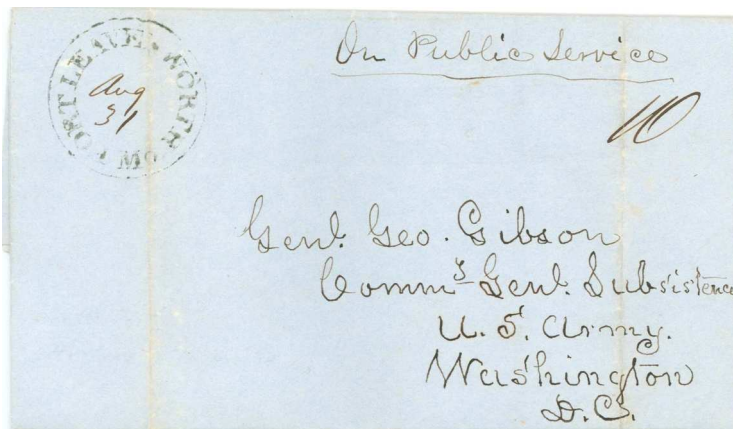 FORT LEAVENWORTH MO
Aug
31
On Public Service
10
Genl. Geo. Gibson
Commy Genl. Subsistence
U. S. Army.
Washington
D.C.